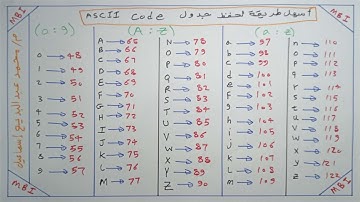 أسهل طريقة لحفظ جدول ASCII Code
(0:9)
0 → 48
1 → 49
2 → 50
3 → 51
4 → 52
5 → 53
6 → 54
7 → 55
8 → 56
9 → 57
(A:Z)
A → 65
B → 66
C → 67
D → 68
E → 69
F → 70
G → 71
H → 72
I → 73
J → 74
K → 75
L → 76
M → 77
N → 78
O → 79
P → 80
Q → 81
R → 82
S → 83
T → 84
U → 85
V → 86
W → 87
X → 88
Y → 89
Z → 90
(a:z)
a → 97
b → 98
c → 99
d → 100
e → 101
f → 102
g → 103
h → 104
i → 105
j → 106
k → 107
l → 108
m → 109
n → 110
o → 111
p → 112
q → 113
r → 114
s → 115
t → 116
u → 117
v → 118
w → 119
x → 120
y → 121
z → 122
م/ محمد عبد البديع إسماعيل
MBI
MBI
MBI
MBI